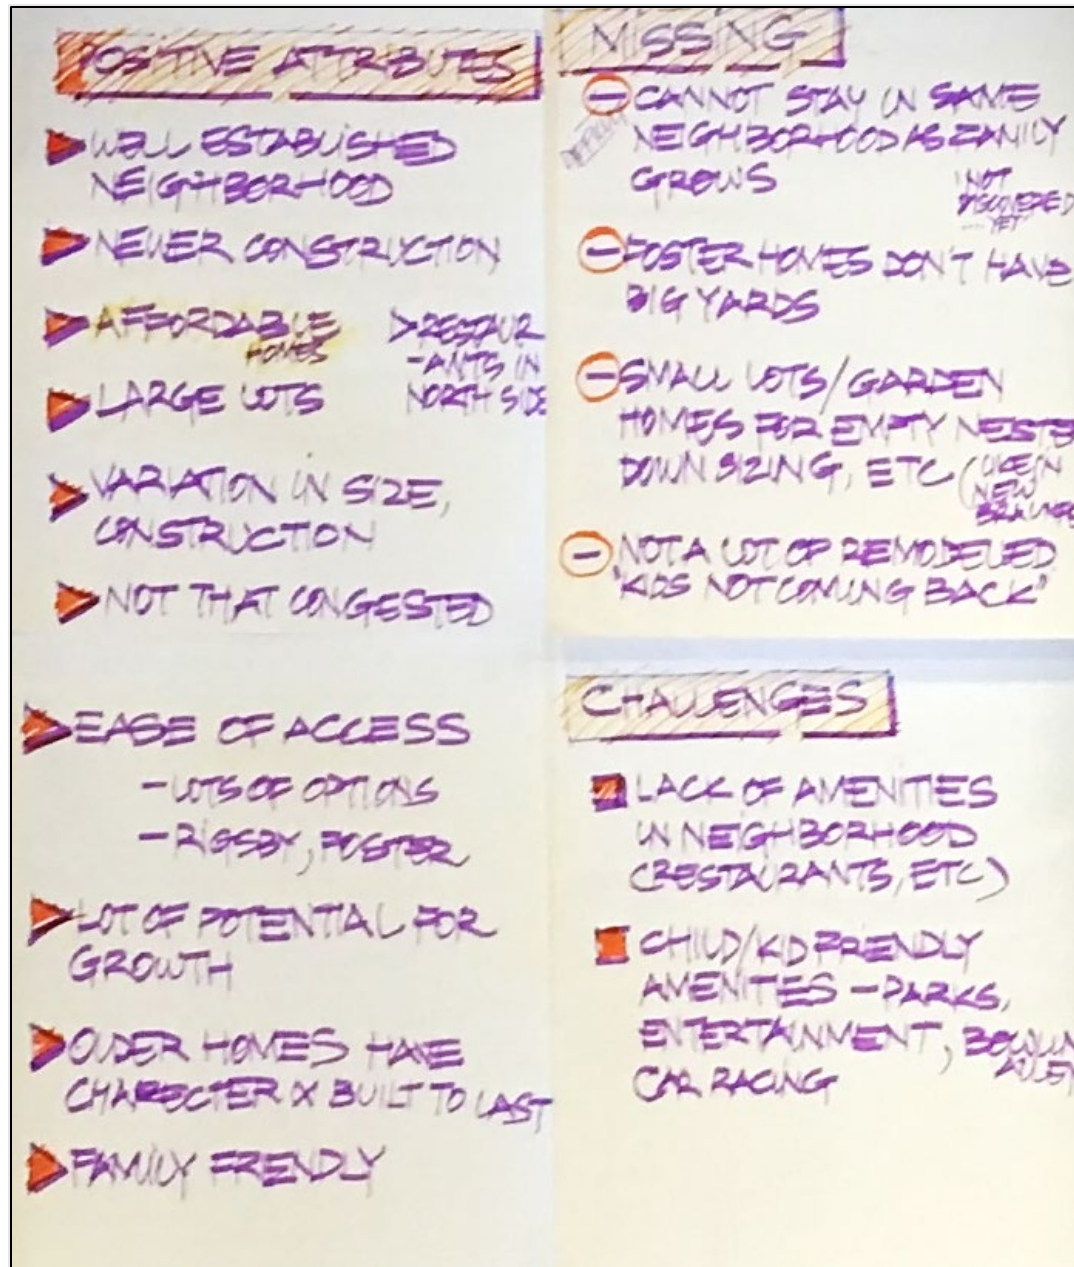 POSITIVE ATTRIBUTES
WELL ESTABLISHED
NEIGHBORHOOD
NEWER CONSTRUCTION
AFFORDABLE
HOMES
LARGE LOTS
>RESTAUR
-ANTS IN
NORTH SIDE
VARIATION IN SIZE,
CONSTRUCTION
NOT THAT CONGESTED
EASE OF ACCESS
- LOTS OF OPTIONS
- RIGSBY, FOSTER
LOT OF POTENTIAL FOR
GROWTH
OLDER HOMES HAVE
CHARECTER & BUILT TO LAST
FAMILY FRENDLY
MISSING
CANNOT STAY IN SAME
NEIGHBORHOOD AS FAMILY
GROWS
NOT
DISCOVERED
... YET"
FOSTER HOMES DON'T HAVE
BIG YARDS
SMALL LOTS/GARDEN
HOMES FOR EMPTY NESTE
DOWN SIZING, ETC (LIKE IN
NEW
BRAUNFE
NOT A LOT OF REMODELED
"KIDS NOT COMING BACK"
CHALLENGES
LACK OF AMENITIES
IN NEIGHBORHOOD
(RESTAURANTS, ETC)
CHILD/KID FRIENDLY
AMENITIES - PARKS,
ENTERTAINMENT, BOWLIN
ALLEY
CAR RACING